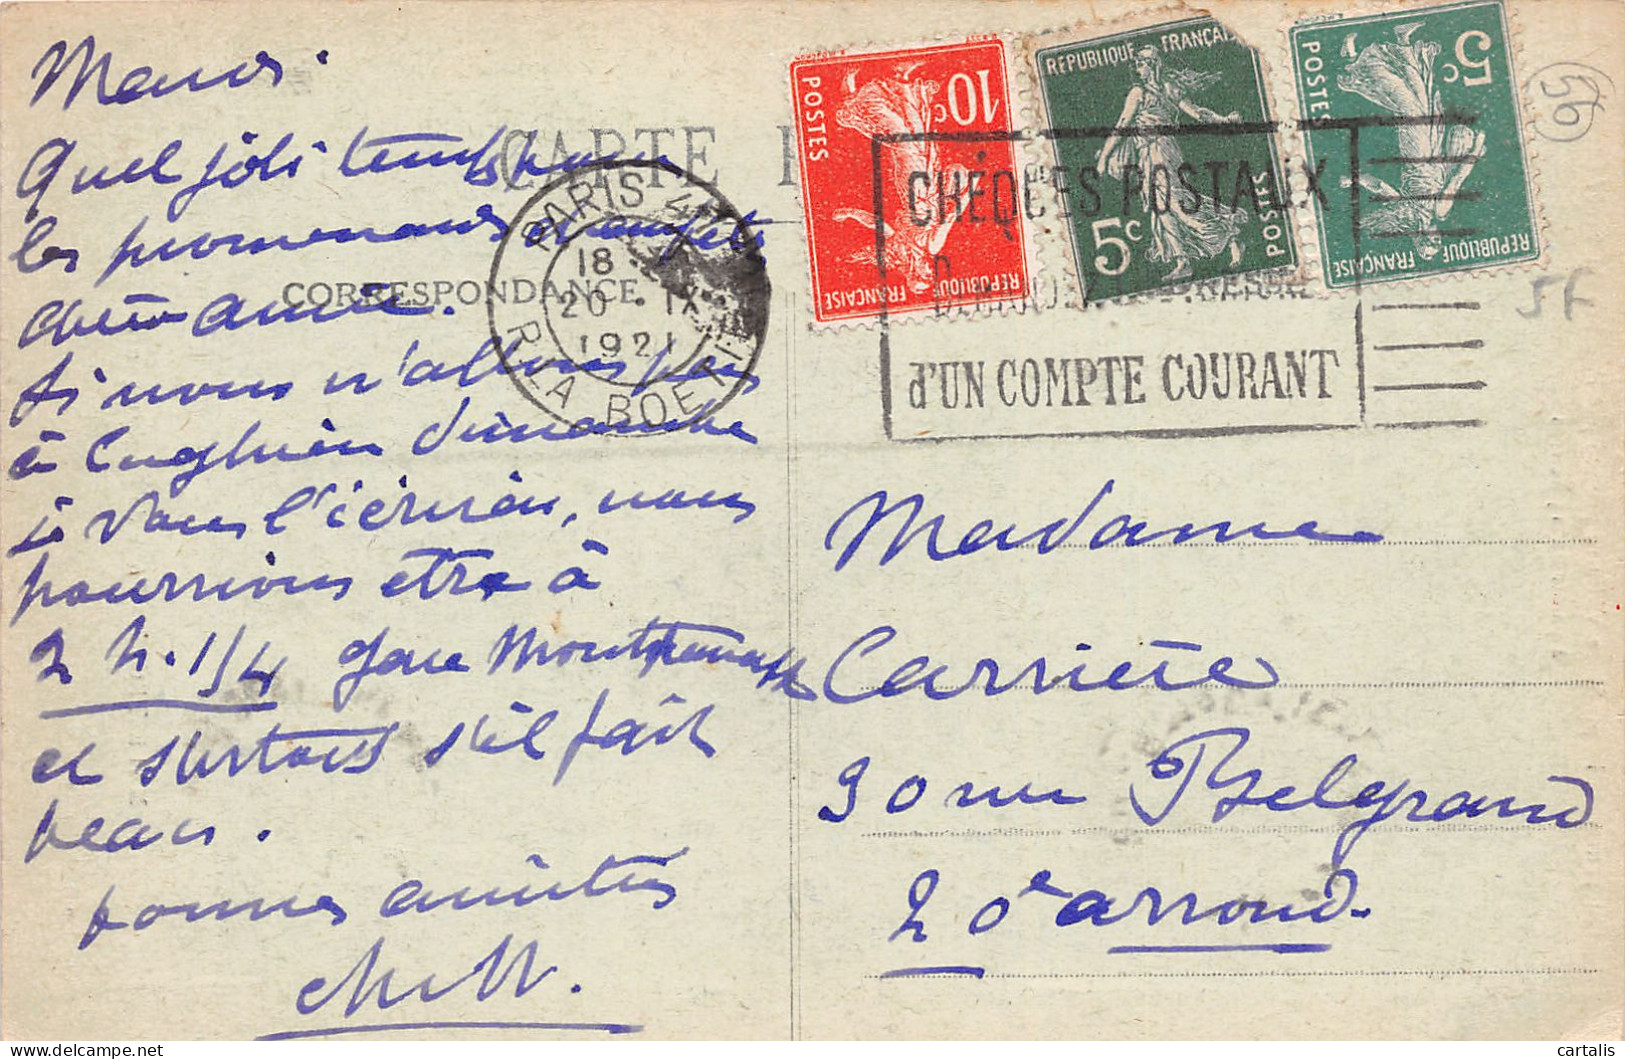 Quel joli temps pour
les promenades
chère amie.
Si nous n'allons pas
à Enghien dimanche
je vous l'écrirai, nous
pourrions etre à
2 h. 1/4 gare Montparnasse
et surtout s'il fait
beau.
bonnes amitiés
CARTE P
CORRESPONDANCE
PARIS
18
20 · IX
1921
R. LA BOETIE
10c
POSTES
REPUBLIQUE FRANÇAISE
REPUBLIQUE FRANÇAI
5c
POSTES
5c
POSTES
REPUBLIQUE FRANÇAISE
CHÈQUES POSTAUX
d'UN COMPTE COURANT
Madame
Carrière
30 rue Belgrand
20e arrond.
cartalis